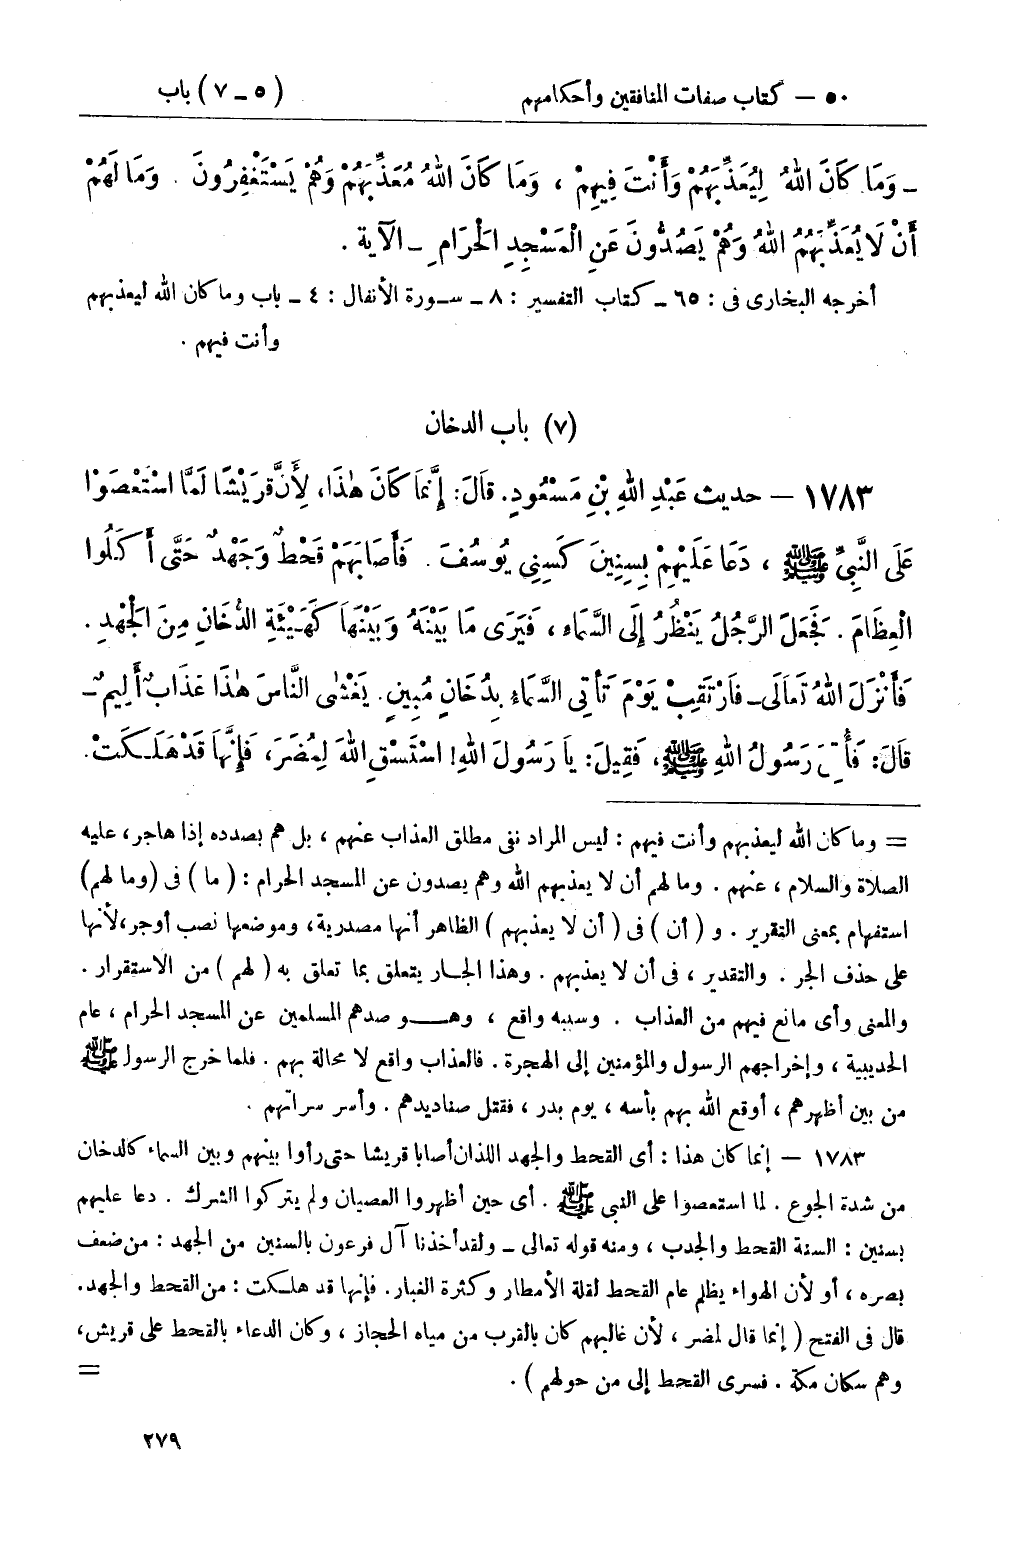 ٥٠ — كتاب صفات المنافقين وأحكامهم (٥ – ٧) باب
– وَمَا كَانَ اللهُ لِيُعَذِّبَهُمْ وَأَنْتَ فِيهِمْ ، وَمَا كَانَ اللهُ مُعَذِّبَهُمْ وَهُمْ يَسْتَغْفِرُونَ . وَمَا لَهُمْ
أَنْ لَا يُعَذِّبَهُمُ اللهُ وَهُمْ يَصُدُّونَ عَنِ الْمَسْجِدِ الْحَرَامِ – الْآية .
أخرجه البخارى فى : ٦٥ – كتاب التفسير : ٨ – سورة الأنفال : ٤ – باب وما كان الله ليعذبهم
وأنت فيهم .
(٧) باب الدخان
١٧٨٣ — حديث عَبْدِ اللهِ بْنِ مَسْعُودٍ. قَالَ: إِنَّمَا كَانَ هٰذَا، لِأَنَّ قُرَيْشًا لَمَّا اسْتَعْصَوْا
عَلَى النَّبِيِّ ﷺ ، دَعَا عَلَيْهِمْ بِسِنِينَ كَسِنِي يُوسُفَ . فَأَصَابَهُمْ قَحْطٌ وَجَهْدٌ حَتَّى أَكَلُوا
الْعِظَامَ . فَجَعَلَ الرَّجُلُ يَنْظُرُ إِلَى السَّمَاءِ ، فَيَرَى مَا بَيْنَهُ وَبَيْنَهَا كَهَيْئَةِ الدُّخَانِ مِنَ الْجَهْدِ .
فَأَنْزَلَ اللهُ تَعَالَى – فَارْتَقِبْ يَوْمَ تَأْتِي السَّمَاءِ بِدُخَانٍ مُبِينٍ . يَغْشَى النَّاسَ هٰذَا عَذَابٌ أَلِيمٌ –
قَالَ: رَسُولُ اللهِ ﷺ، فَقِيلَ: يَا رَسُولَ اللهِ! اسْتَسْقِ اللهَ لِمُضَرَ، فَإِنَّهَا قَدْ هَلَكَتْ.
= وما كان الله ليعذبهم وأنت فيهم : ليس المراد نفى مطلق العذاب عنهم ، بل هم بصدده إذا هاجر ، عليه
الصلاة والسلام ، عنهم . وما لهم أن لا يعذبهم الله وهم يصدون عن المسجد الحرام : ( ما ) فى (وما لهم)
استفهام بمعنى التقرير . و ( أن ) فى ( أن لا يعذبهم ) الظاهر أنها مصدرية ، وموضعها نصب أوجر ، لأنها
على حذف الجر . والتقدير ، فى أن لا يعذبهم . وهذا الجار يتعلق بما تعلق به ( لهم ) من الاستقرار .
والمعنى وأى مانع فيهم من العذاب . وسببه واقع ، وهو صدهم المسلمين عن المسجد الحرام ، عام
الحديبية ، وإخراجهم الرسول والمؤمنين إلى الهجرة . فالعذاب واقع لا محالة بهم . فلما خرج الرسول ﷺ
من بين أظهرهم ، أوقع الله بهم بأسه ، يوم بدر ، فقتل صناديدهم . وأسر سراتهم .
١٧٨٣ – إنما كان هذا : أى القحط والجهد اللذان أصابا قريشا حتى رأوا بينهم وبين السماء كالدخان
من شدة الجوع . لما استعصوا على النبى ﷺ . أى حين أظهروا العصيان ولم يتركوا الشرك . دعا عليهم
بسنين : السنة القحط والجدب ، ومنه قوله تعالى – ولقد أخذنا آل فرعون بالسنين من الجهد : من ضعف
بصره ، أو لأن الهواء يظلم عام القحط لقلة الأمطار وكثرة الغبار. فإنها قد هلكت : من القحط والجهد.
قال فى الفتح ( إنما قال لمضر ، لأن غالبهم كان بالقرب من مياه الحجاز ، وكان الدعاء بالقحط على قريش،
وهم سكان مكة . فسرى القحط إلى من حولهم ) . =
٢٧٩